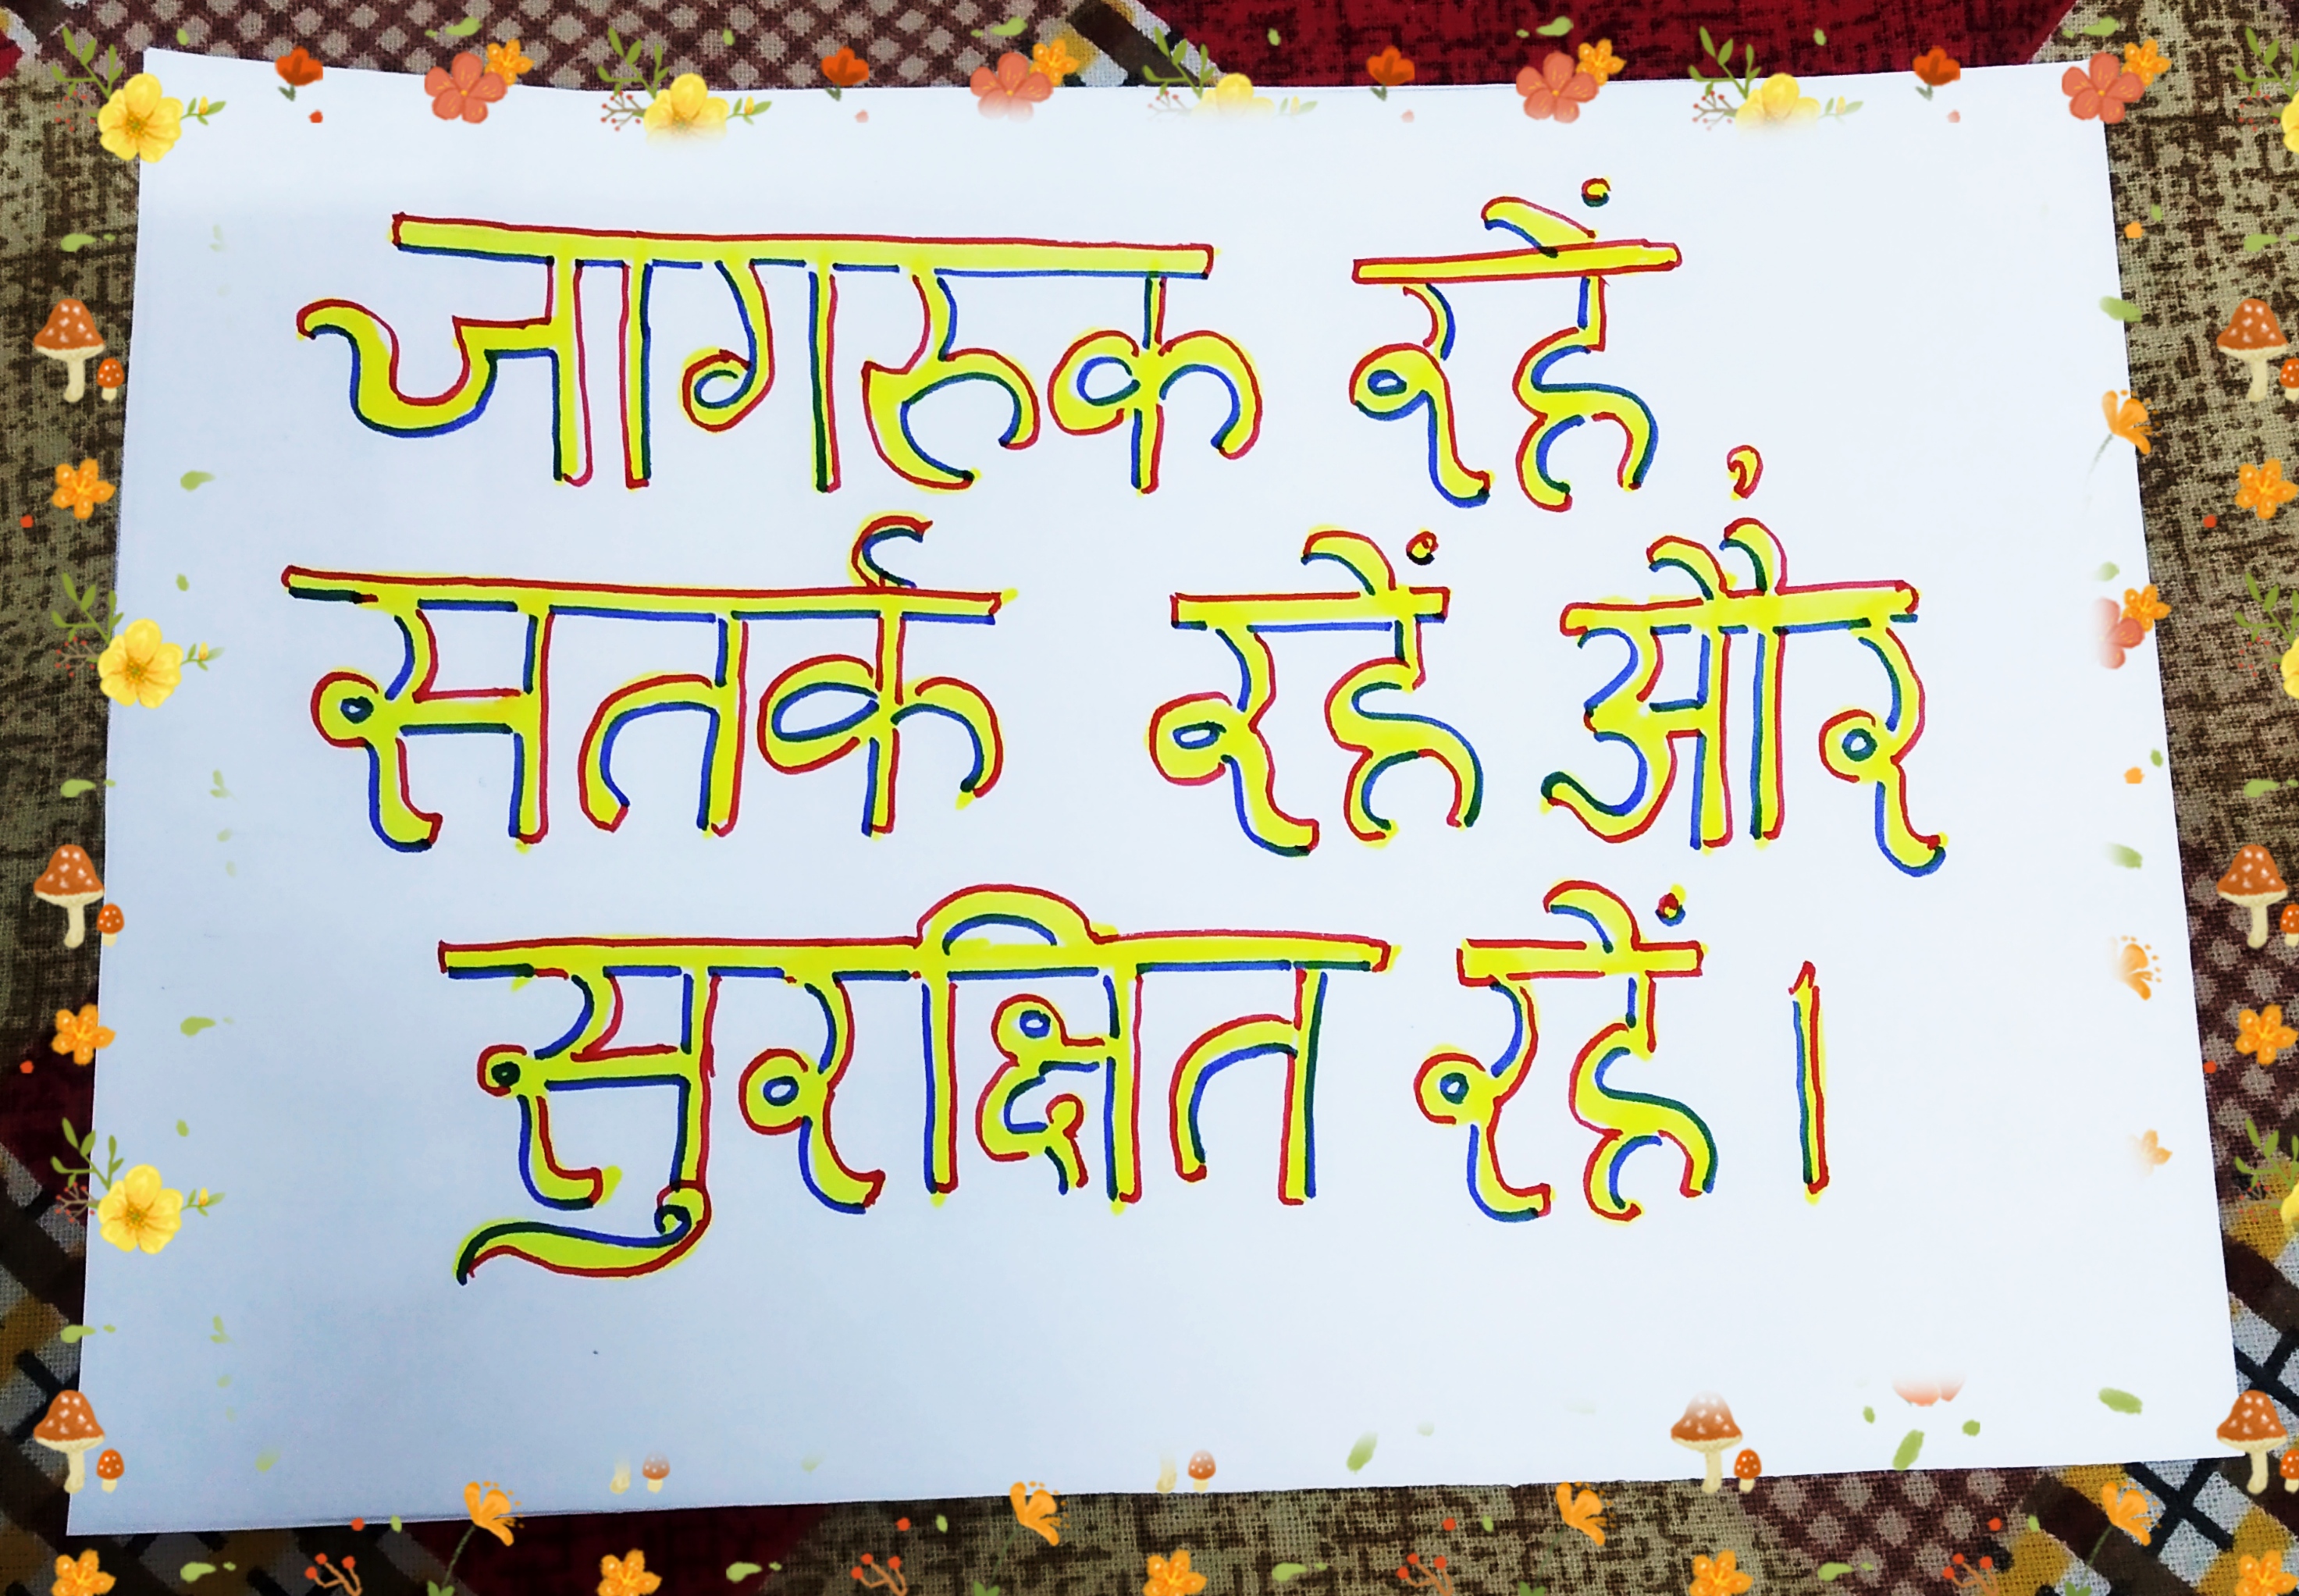 जागरुक रहें,
सतर्क रहें और
सुरक्षित रहें।